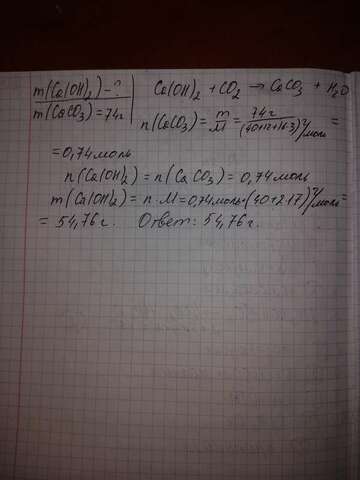 m(Ca(OH)₂) - ?
m(CaCO₃) = 74г
Ca(OH)₂ + CO₂ → CaCO₃ + H₂O
n(CaCO₃) = m/M = 74г/(40+12+16·3)г/моль =
= 0,74 моль
n(Ca(OH)₂) = n(CaCO₃) = 0,74 моль
m(Ca(OH)₂) = n·M = 0,74 моль·(40+2·17)г/моль =
= 54,76 г. Ответ: 54,76 г.